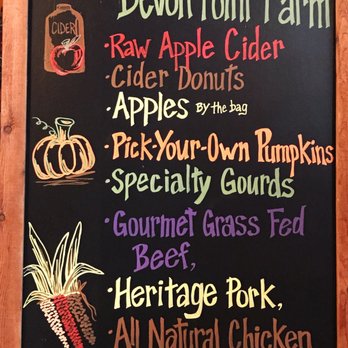 Devon Point Farm
CIDER
·Raw Apple Cider
·Cider Donuts
·Apples By the bag
·Pick-Your-Own Pumpkins
·Specialty Gourds
·Gourmet Grass Fed
Beef,
·Heritage Pork,
·All Natural Chicken